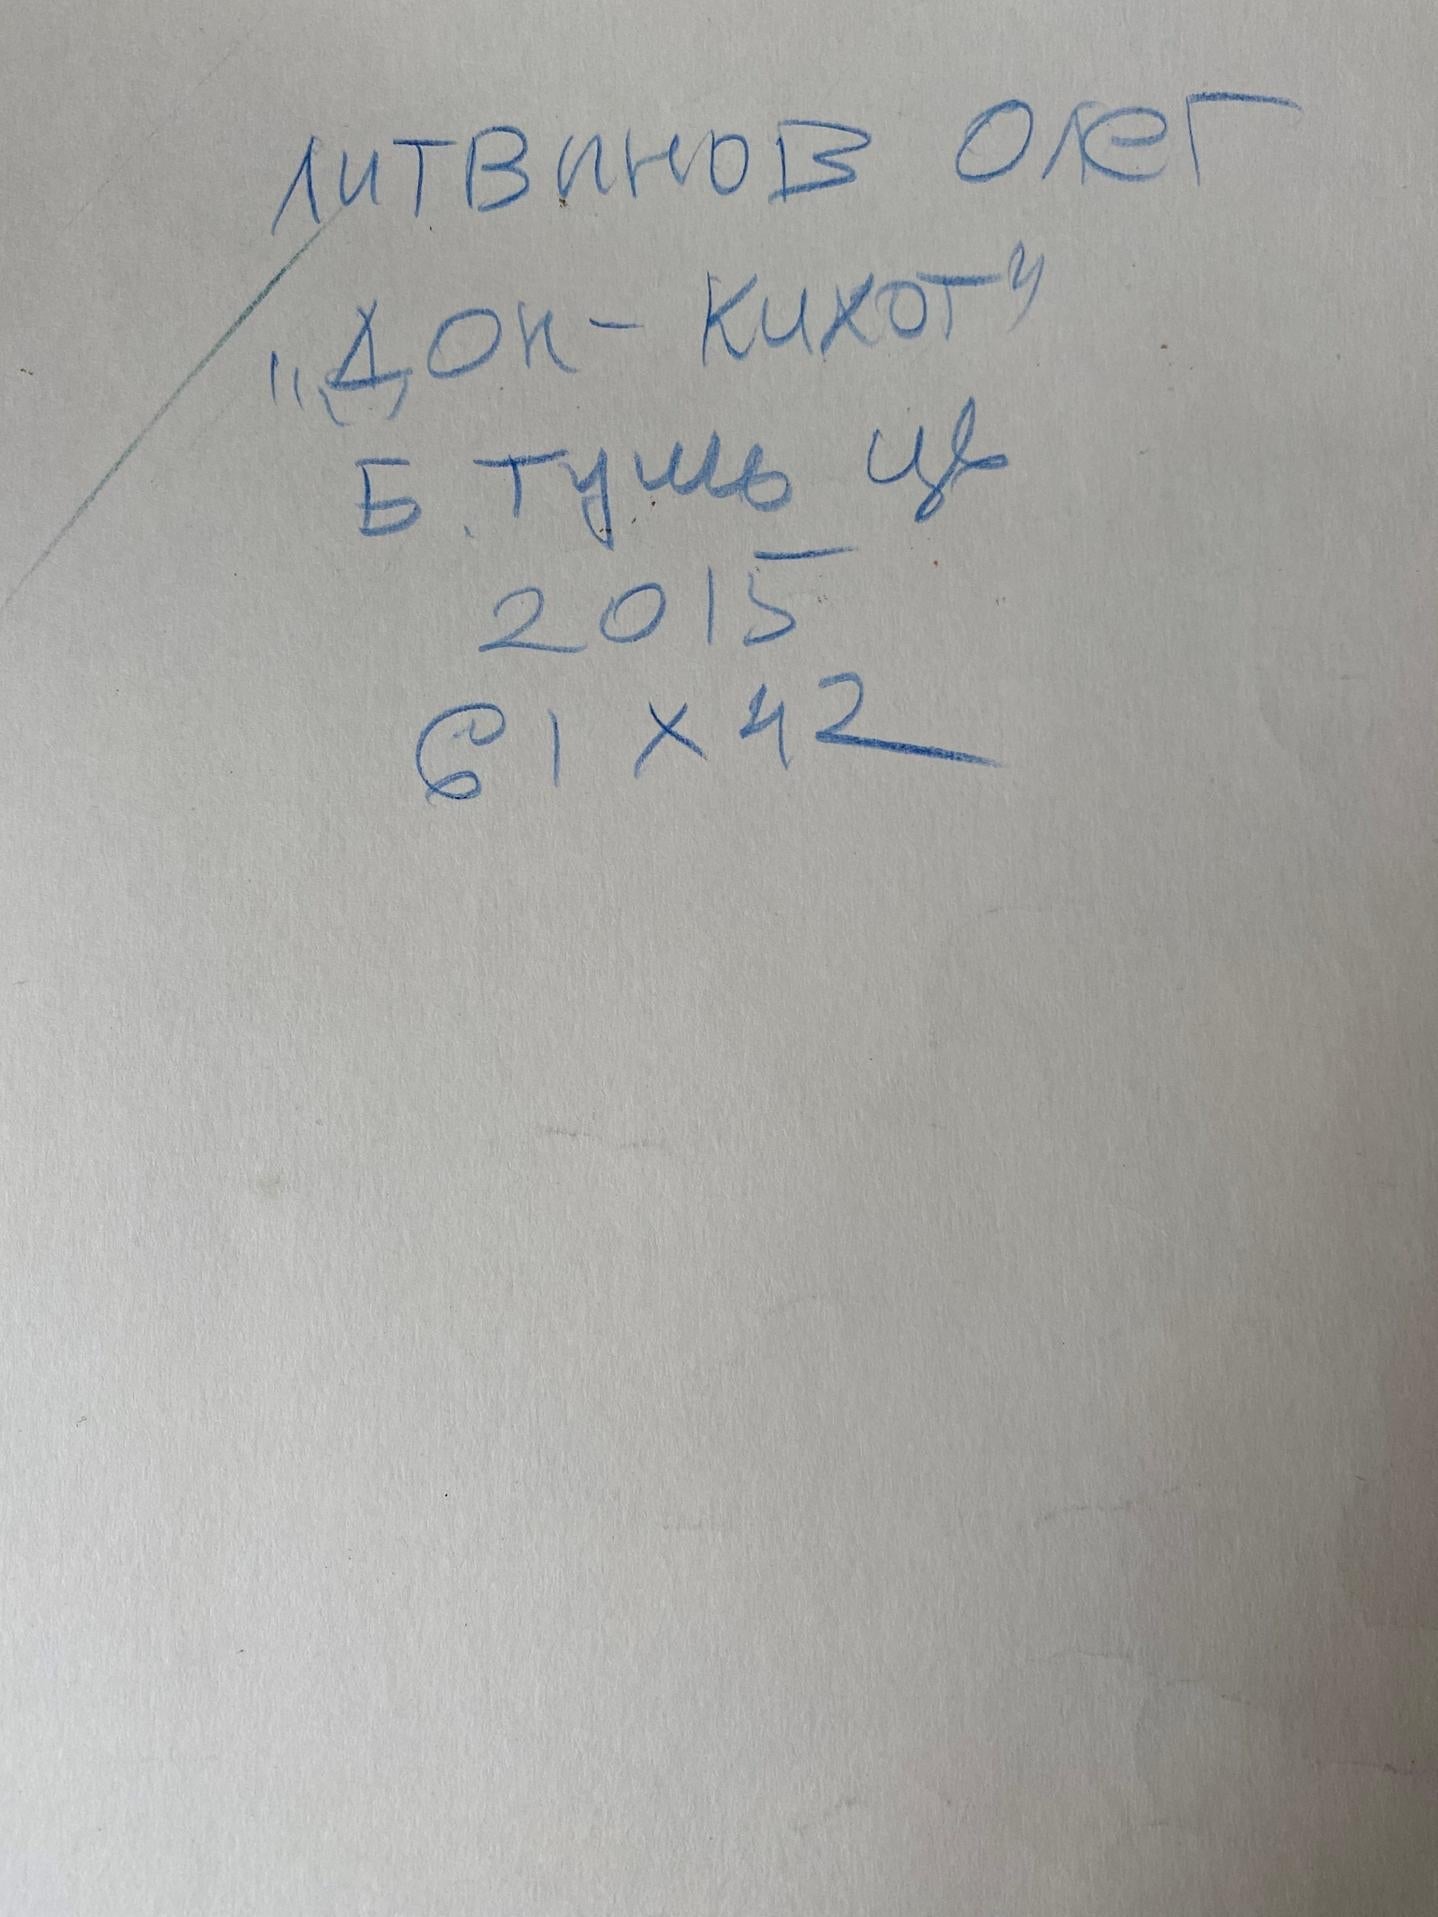 ЛИТВИНОВ ОЛЕГ
„ДОН-КИХОТ"
Б. ТУШЬ ЦВ
2015
61 X 42